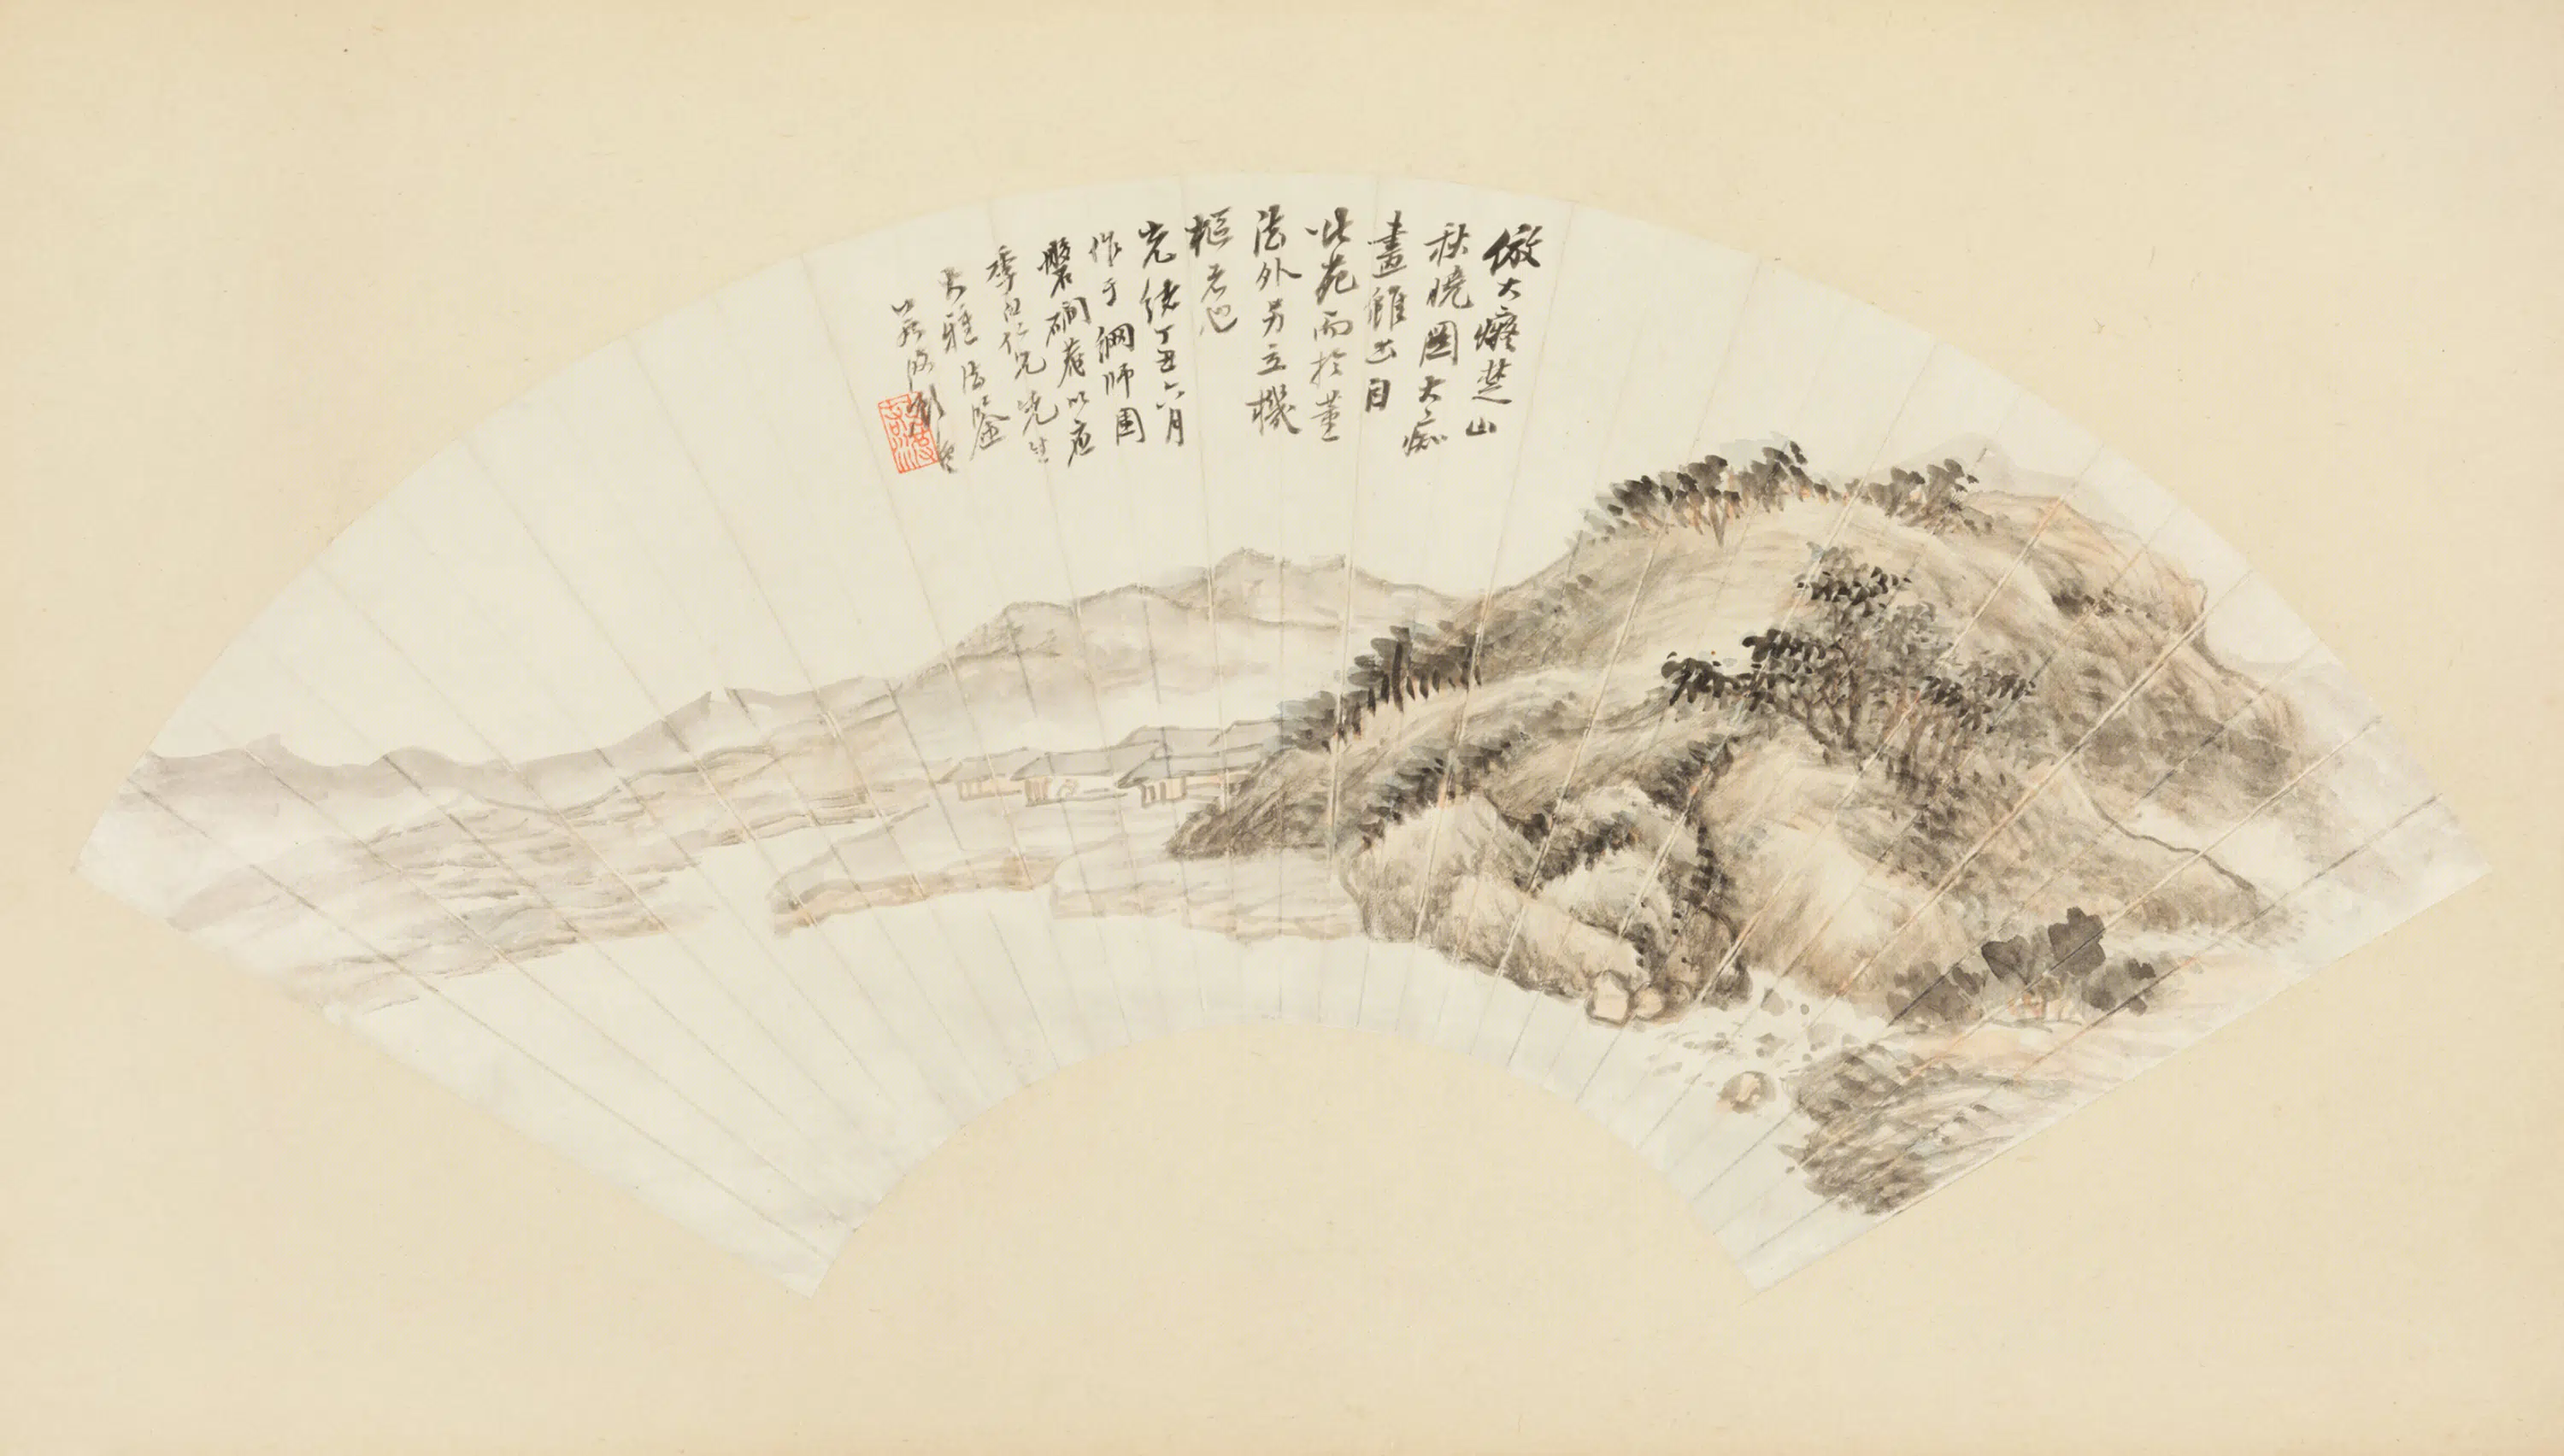 倣大癡楚山
秋曉圖大痴
畫雖出自
北苑而於董
法外另立機
樞者也
光緒丁丑六月
作于網師園
磐磵菴以應
季白仁兄先生
大雅法鑒
若波顧澐